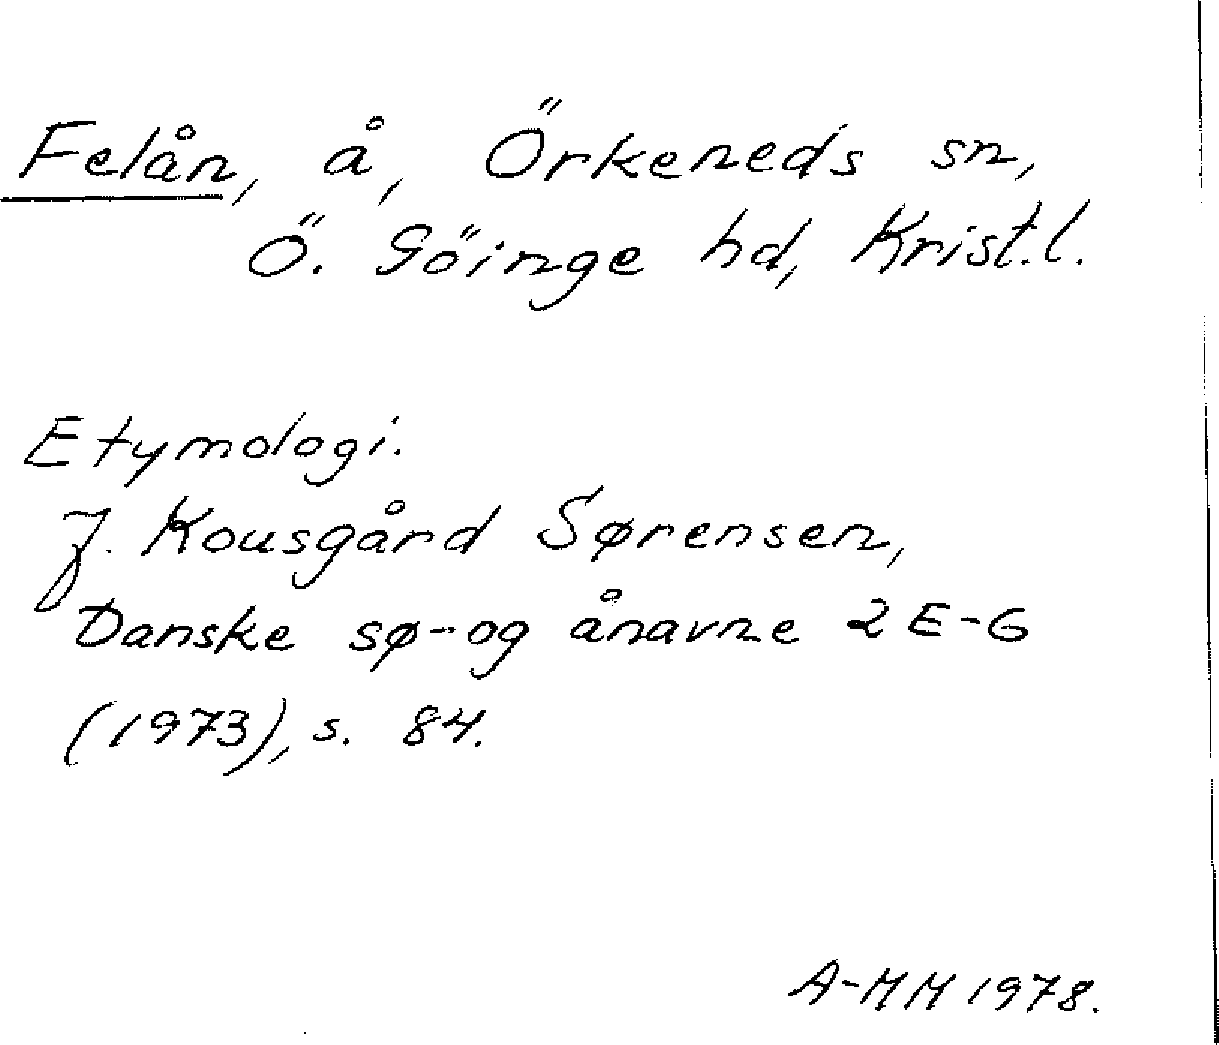 Felån, å, Örkeneds sn,
Ö. Göinge hd, Krist.l.
Etymologi.
J. Kousgård Sørensen,
Danske sø- og ånavne 2 E-G
(1973), s. 84.
A-MM 1978.